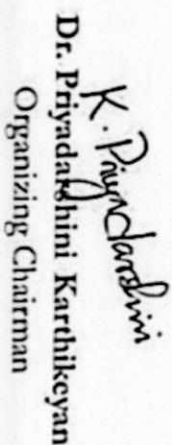 K. Priyadarshini
Dr. Priyadarshini Karthikeyan
Organizing Chairman